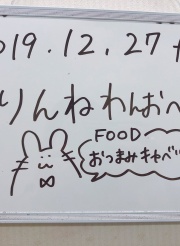 019.12.27
りんねわんおペ
FOOD
おつまみキャベツ